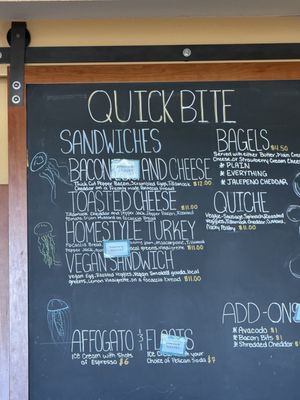 QUICK BITE
SANDWICHES
BACON AND CHEESE
Thick Cut Pepper Bacon, Scrambled Egg, Tillamook
Cheddar on a Freshly Made $12.00
TOASTED CHEESE $11.00
Tillamook Cheddar and Pepper Jack, Pepper Bacon, Roasted
Tomato, Dijon Mustard on Focaccia Bread
HOMESTYLE TURKEY
Focaccia Bread
Pepper Jack $11.00
VEGAN SANDWICH
Vegan Egg, Roasted Veggies, Vegan Smoked Gouda, local
greens, Lemon Vinaigrette on a focaccia bread $11.00
AFFOGATO & FLOATS
Ice Cream with Shots
of Espresso $6
Ice Cream your
Choice of Pelican Soda $7
BAGELS $4.50
Served with either Butter, Plain Cream
Cheese, or Strawberry Cream Cheese
* PLAIN
* EVERYTHING
* JALEPENO CHEDDAR
QUICHE
Veggie-Sausage, Spinach, Roasted
Veggies, Tillamook Cheddar,
Flakey Pastry $11.00
ADD-ONS
* Avacado $1
* Bacon Bits $1
* Shredded Cheddar